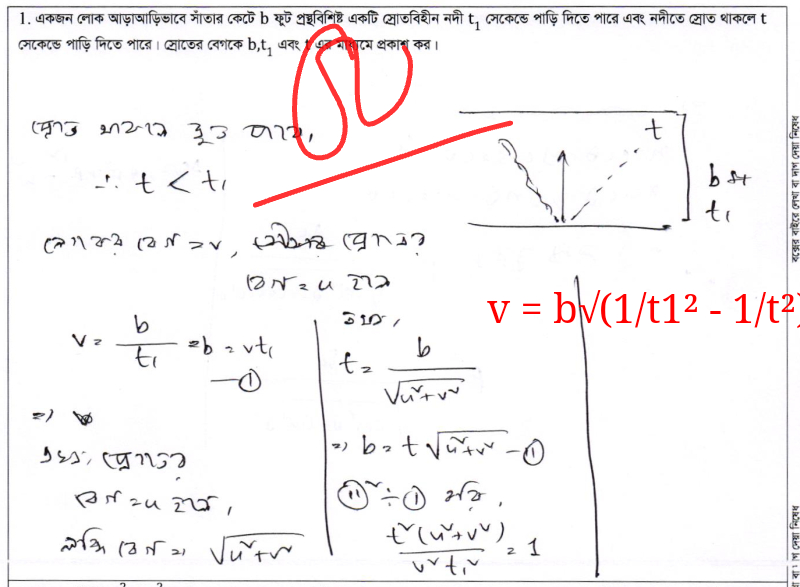 1. একজন লোক আড়াআড়িভাবে সাঁতার কেটে b ফুট প্রস্থবিশিষ্ট একটি স্রোতবিহীন নদী t₁ সেকেন্ডে পাড়ি দিতে পারে এবং নদীতে স্রোত থাকলে t
সেকেন্ডে পাড়ি দিতে পারে। স্রোতের বেগকে b,t₁ এবং t এর মাধ্যমে প্রকাশ কর।
স্রোত থাকলে দ্রুত
∴ t < t₁
t
b ft
t₁
লোকের বেগ = v, স্রোতের
বেগ = u হলে
v = b√(1/t1² - 1/t²)
v = b/t₁ ⇒ b = vt₁
—①
⇒)
এখন, স্রোতের
বেগ = u হলে,
লব্ধি বেগ ⇒ √(u²+v²)
t = b/√(u²+v²)
⇒ b = t√(u²+v²) —⑪
⑪² ÷ ①
t²(u²+v²)/v²t₁² = 1
বক্সের বাইরে লেখা বা দাগ দেয়া নিষেধ